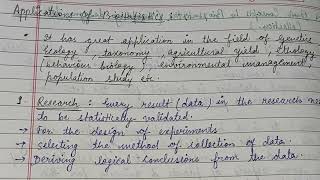 Applications of Biostatistics
It has great application in the field of Genetics
Ecology, taxonomy, agricultural yield, ethology
(behaviour biology), environmental management,
population study etc.
1 Research : Every result (data) in the research need
to be statistically validated.
→ For the design of experiments
→ selecting the method of collection of data.
→ Deriving logical conclusions from the data.